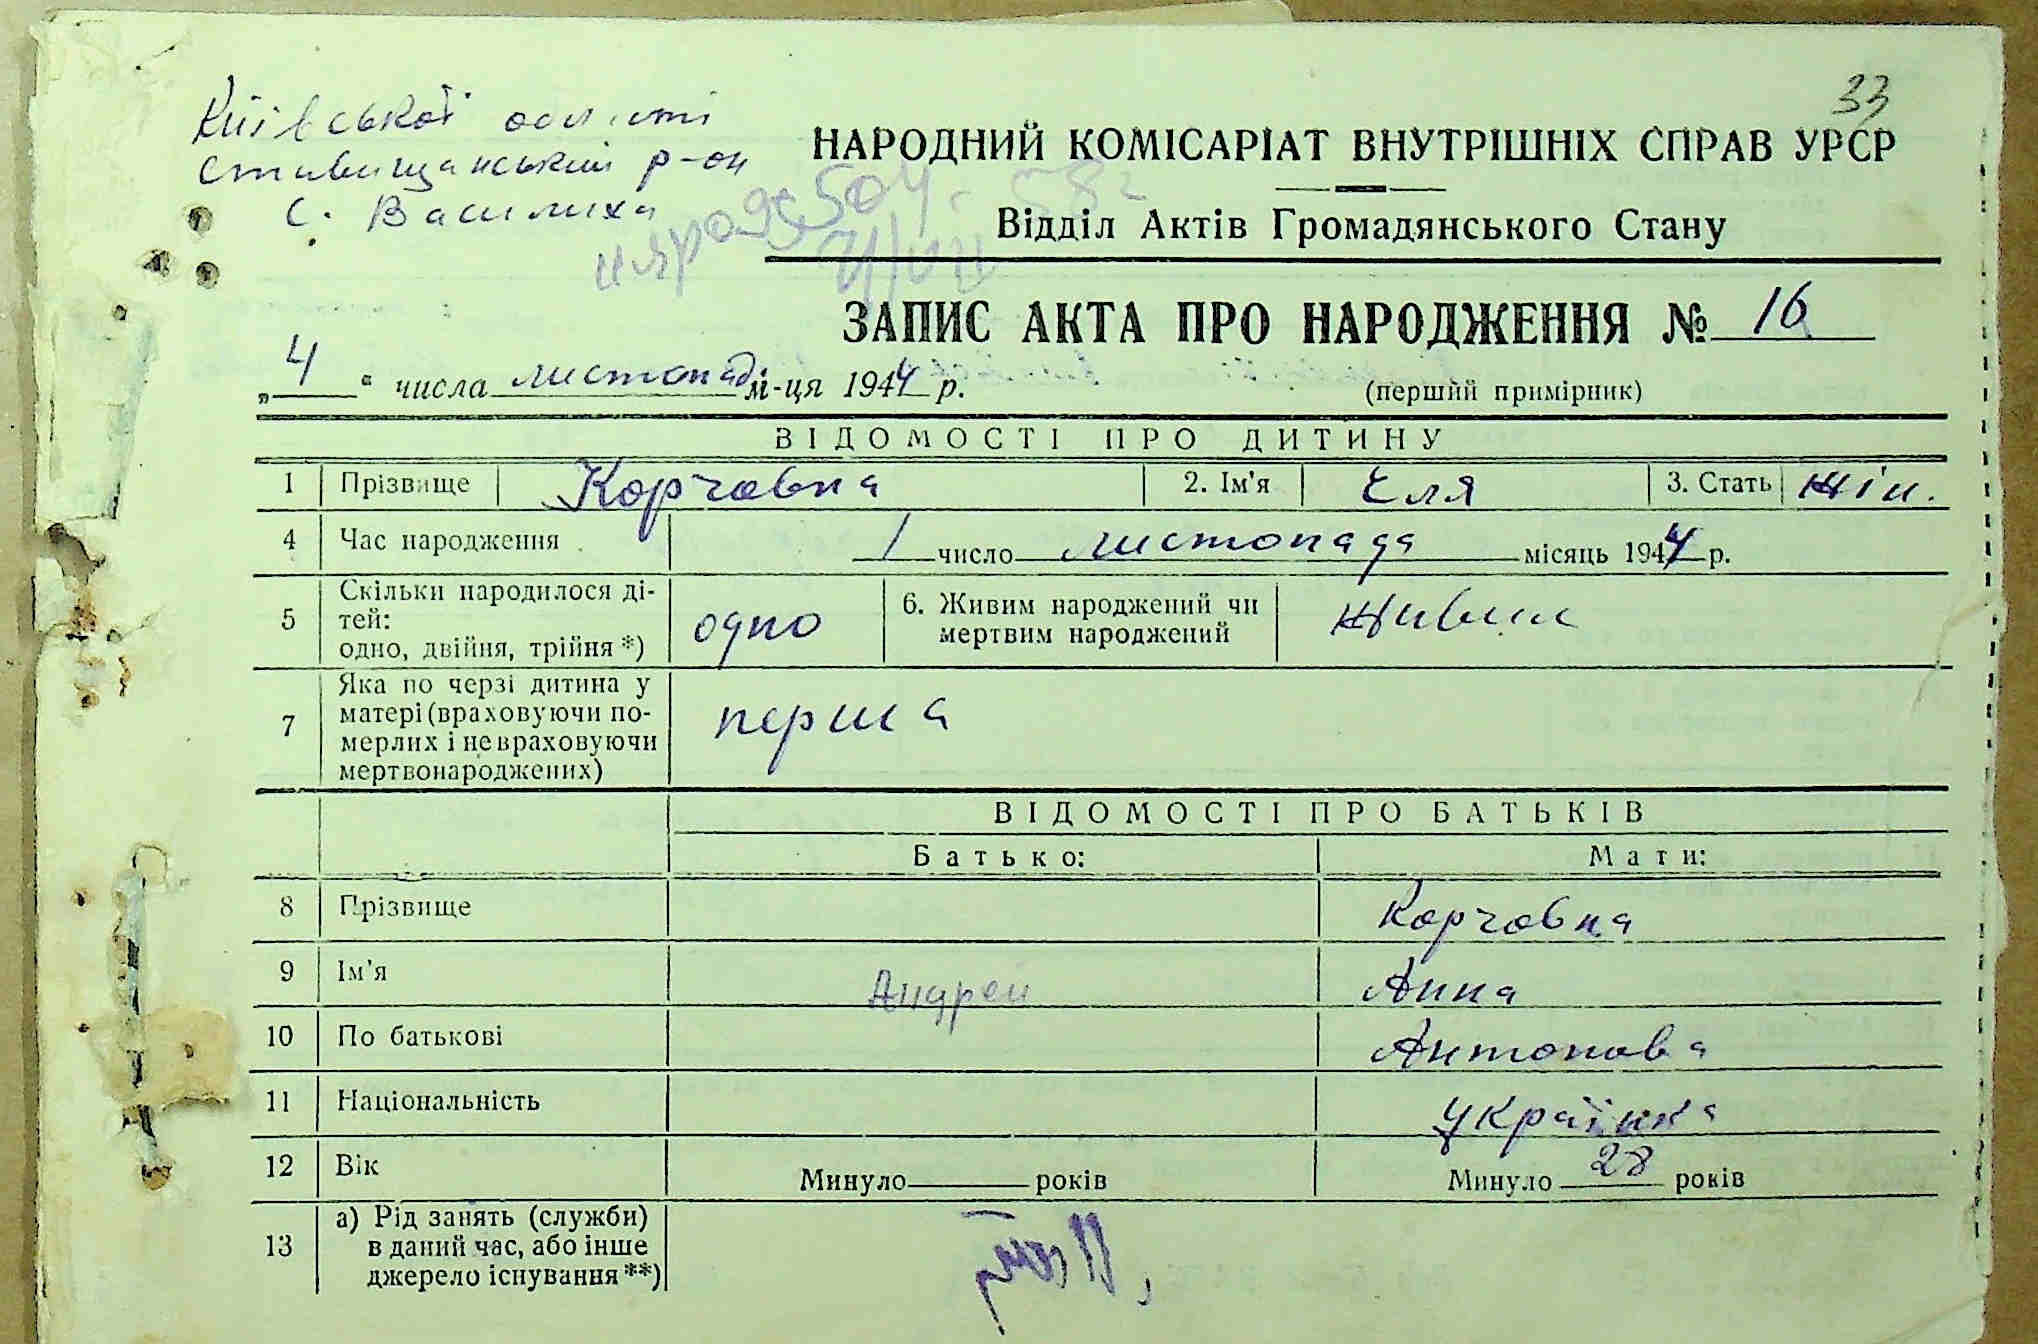 33
Київської області
Ставищанський р-он
с. Василиха
НАРОДНИЙ КОМІСАРІАТ ВНУТРІШНІХ СПРАВ УРСР
Відділ Актів Громадянського Стану
ЗАПИС АКТА ПРО НАРОДЖЕННЯ № 16
„ 4 “ числа листопада м-ця 1944 р. (перший примірник)
ВІДОМОСТІ ПРО ДИТИНУ
1 Прізвище Корчовна 2. Ім'я Єля 3. Стать жін.
4 Час народження 1 число листопада місяць 1944 р.
5 Скільки народилося ді-
тей:
одно, двійня, трійня *) одно 6. Живим народжений чи
мертвим народжений живим
7 Яка по черзі дитина у
матері (враховуючи по-
мерлих і не враховуючи
мертвонароджених) перша
ВІДОМОСТІ ПРО БАТЬКІВ
Батько: Мати:
8 Прізвище Корчовна
9 Ім'я Андрей Анна
10 По батькові Антонова
11 Національність Українка
12 Вік Минуло років Минуло 28 років
13 а) Рід занять (служби)
в даний час, або інше
джерело існування **)